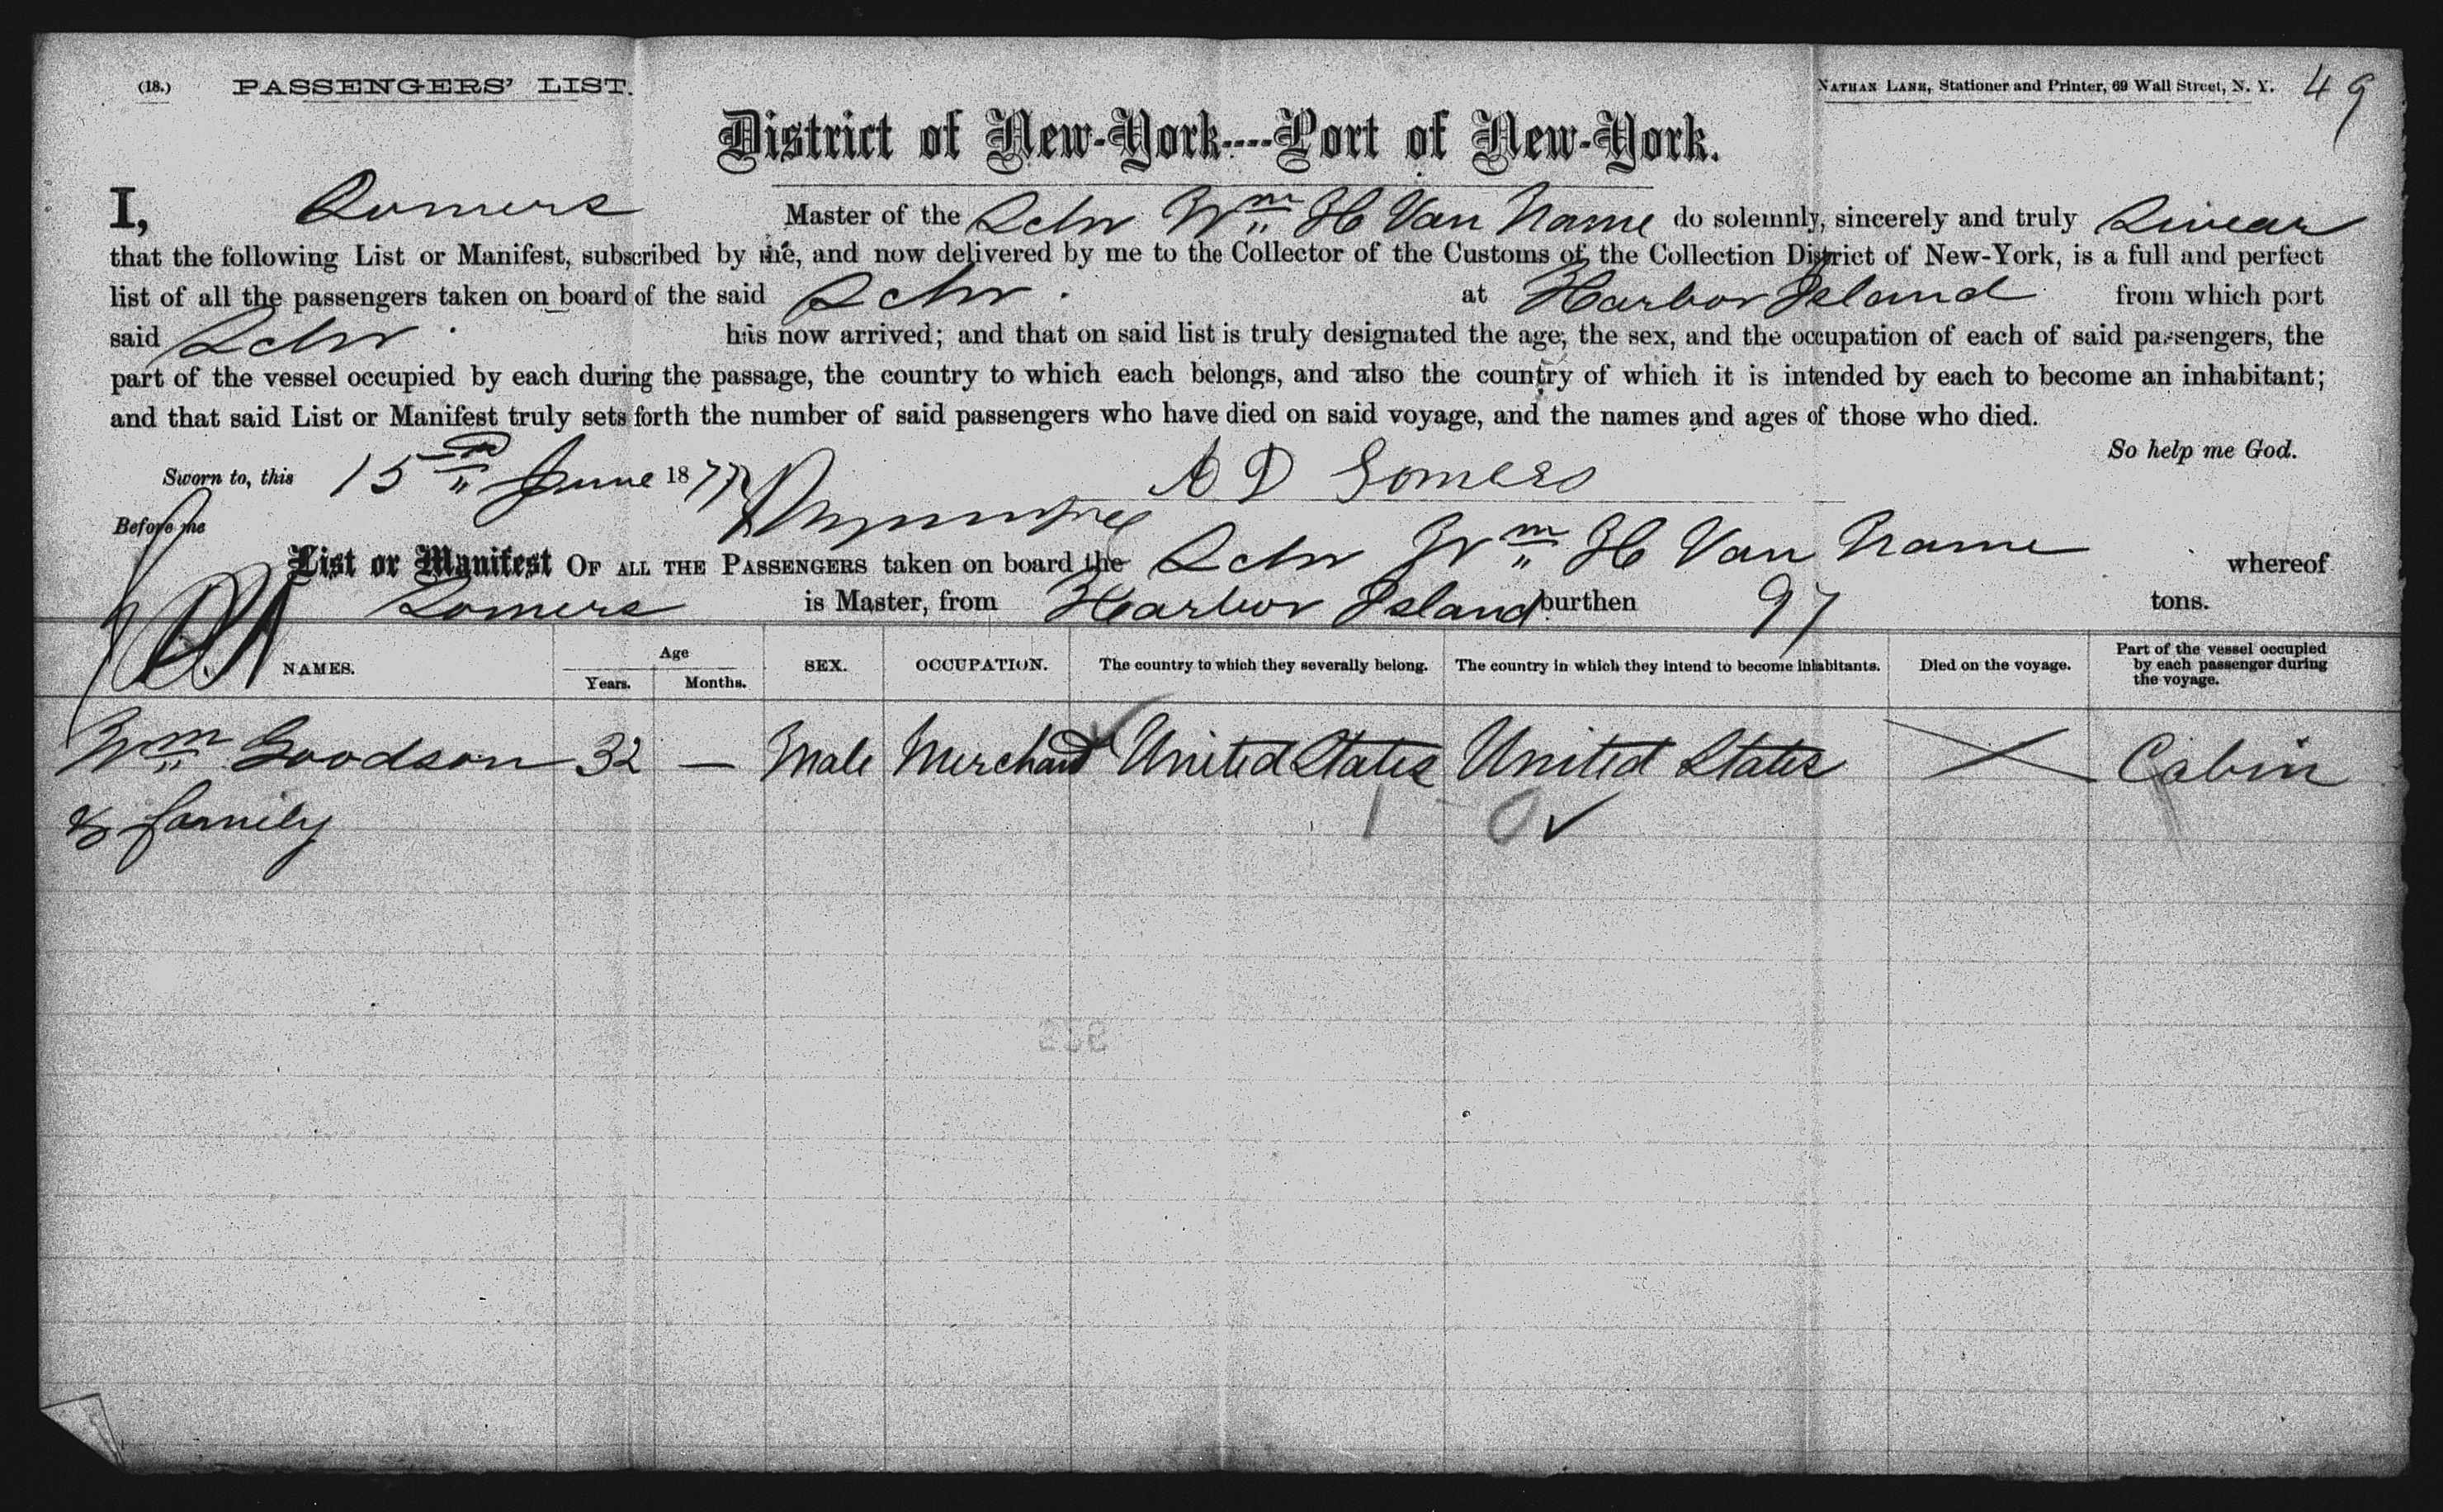 (18.) PASSENGERS' LIST.
NATHAN LANE, Stationer and Printer, 69 Wall Street, N. Y. 49
District of New-York----Port of New-York.
I, Somers Master of the Schr Wm H Van Name do solemnly, sincerely and truly Swear
that the following List or Manifest, subscribed by me, and now delivered by me to the Collector of the Customs of the Collection District of New-York, is a full and perfect
list of all the passengers taken on board of the said Schr. at Harbor Island from which port
said Schr. has now arrived; and that on said list is truly designated the age, the sex, and the occupation of each of said passengers, the
part of the vessel occupied by each during the passage, the country to which each belongs, and also the country of which it is intended by each to become an inhabitant;
and that said List or Manifest truly sets forth the number of said passengers who have died on said voyage, and the names and ages of those who died.
So help me God.
Sworn to, this 15th June 1877 A D Somers
Before me
List or Manifest OF ALL THE PASSENGERS taken on board the Schr Wm H Van Name whereof
Somers is Master, from Harbor Island burthen 97 tons.
NAMES. Age Years. Months. SEX. OCCUPATION. The country to which they severally belong. The country in which they intend to become inhabitants. Died on the voyage. Part of the vessel occupied by each passenger during the voyage.
Wm Goodson 32 — Male Merchant United States United States Cabin
& family 1 - 0 ✓